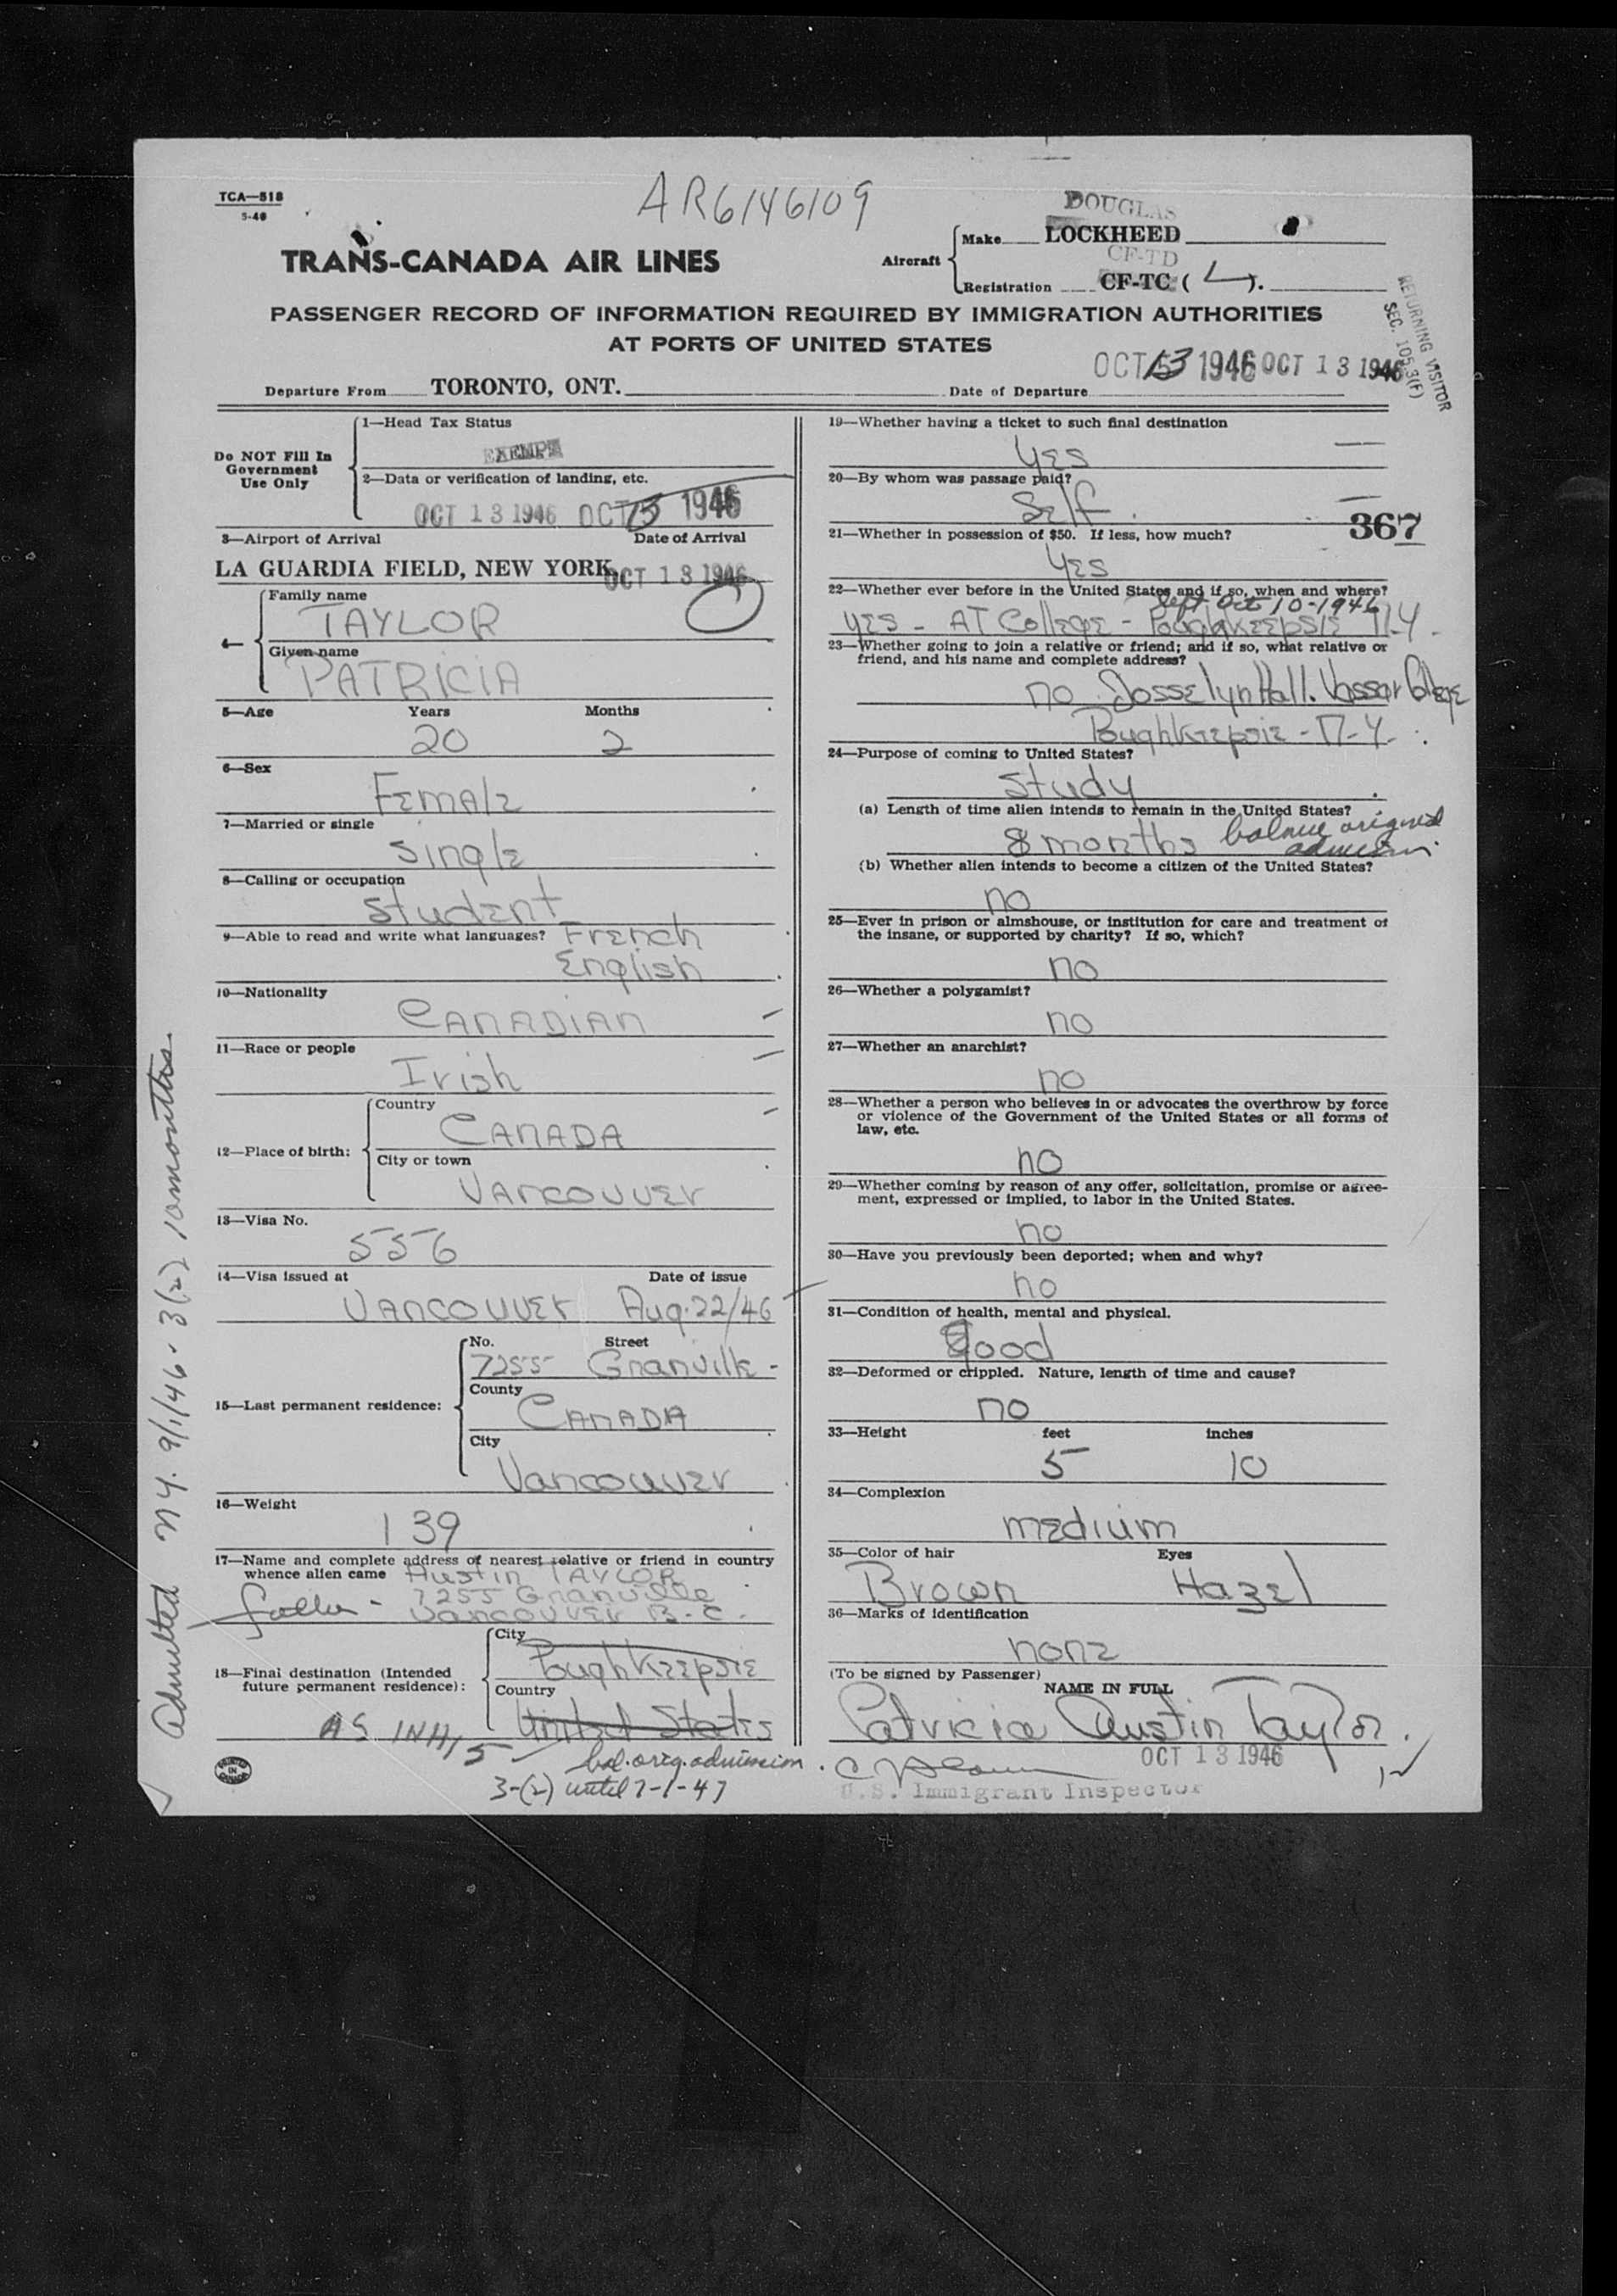 TCA—518
5-46
AR6146109
DOUGLAS
TRANS-CANADA AIR LINES
Aircraft
Make LOCKHEED
CF-TD
Registration CF-TC ( L ).
RETURNING VISITOR
SEC. 105.3(F)
PASSENGER RECORD OF INFORMATION REQUIRED BY IMMIGRATION AUTHORITIES
AT PORTS OF UNITED STATES
OCT 13 1946 OCT 13 1946
Departure From TORONTO, ONT. Date of Departure
Do NOT Fill In
Government
Use Only
1—Head Tax Status
EXEMPT
2—Data or verification of landing, etc.
OCT 13 1946 OCT 13 1946
3—Airport of Arrival Date of Arrival
LA GUARDIA FIELD, NEW YORK OCT 13 1946
4—
Family name
TAYLOR
Given name
PATRICIA
5—Age Years Months
20 2
6—Sex
Female
7—Married or single
single
8—Calling or occupation
student
9—Able to read and write what languages? French
English
10—Nationality
CANADIAN
11—Race or people
Irish
12—Place of birth:
Country
CANADA
City or town
VANCOUVER
13—Visa No.
556
14—Visa issued at Date of issue
VANCOUVER Aug. 22/46
15—Last permanent residence:
No. Street
7255 Granville -
County
CANADA
City
Vancouver
16—Weight
139
17—Name and complete address of nearest relative or friend in country
whence alien came Austin TAYLOR
7255 Granville
father - Vancouver B.C.
18—Final destination (Intended
future permanent residence):
City
Poughkeepsie
Country
United States
AS INH
bal. orig. admission.
3-(2) until 7-1-47
PRINTED
IN
CANADA
Admitted N.Y. 9/1/46 - 3(2) 10 months.
19—Whether having a ticket to such final destination
Yes
20—By whom was passage paid?
Self.
367
21—Whether in possession of $50. If less, how much?
Yes
22—Whether ever before in the United States and if so, when and where?
left Oct 10-1946
yes - AT College - Poughkeepsie N.Y.
23—Whether going to join a relative or friend; and if so, what relative or
friend, and his name and complete address?
no. Josselyn Hall. Vassar College
Poughkeepsie - N.Y.
24—Purpose of coming to United States?
study
(a) Length of time alien intends to remain in the United States?
8 months balance original
admission.
(b) Whether alien intends to become a citizen of the United States?
no
25—Ever in prison or almshouse, or institution for care and treatment of
the insane, or supported by charity? If so, which?
no
26—Whether a polygamist?
no
27—Whether an anarchist?
no
28—Whether a person who believes in or advocates the overthrow by force
or violence of the Government of the United States or all forms of
law, etc.
no
29—Whether coming by reason of any offer, solicitation, promise or agree-
ment, expressed or implied, to labor in the United States.
no
30—Have you previously been deported; when and why?
no
31—Condition of health, mental and physical.
good
32—Deformed or crippled. Nature, length of time and cause?
no
33—Height feet inches
5 10
34—Complexion
medium
35—Color of hair Eyes
Brown Hazel
36—Marks of identification
none
(To be signed by Passenger)
NAME IN FULL
Patricia Austin Taylor.
OCT 13 1946
U.S. Immigrant Inspector